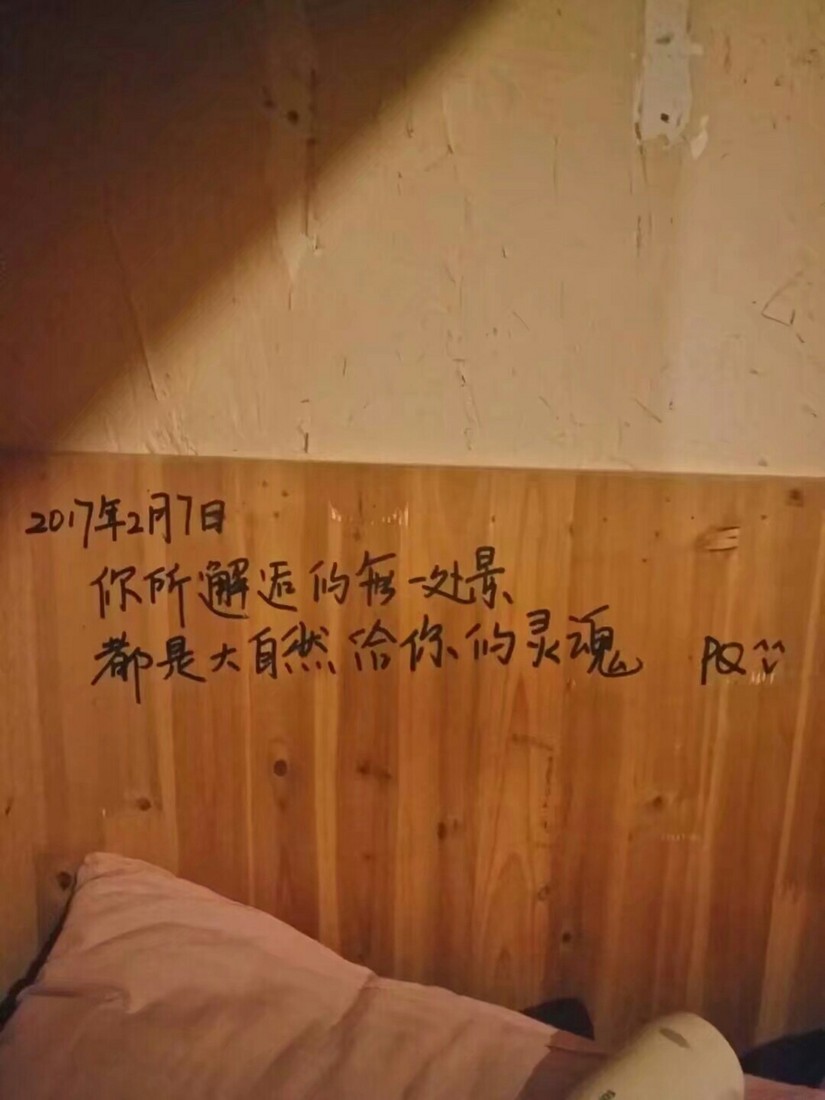 2017年2月7日
你所邂逅的每一处景
都是大自然给你的灵魂 PQ^^